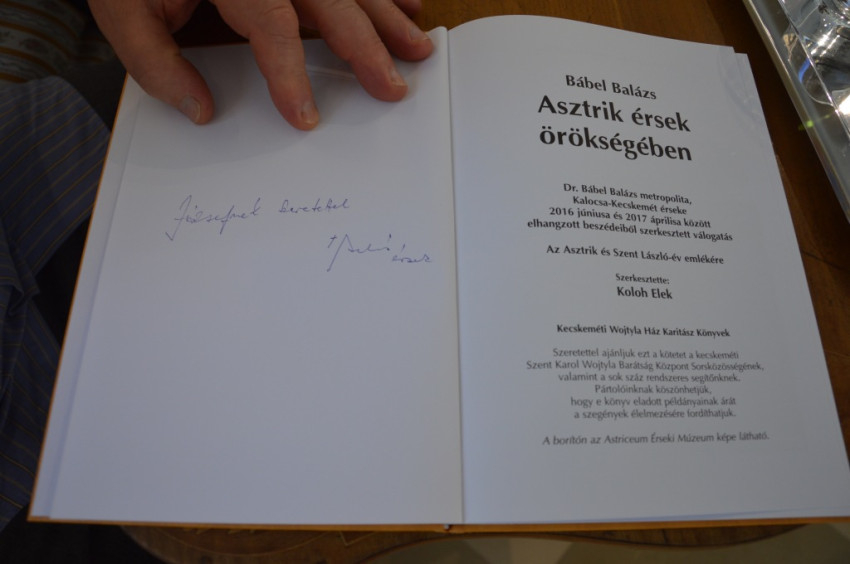 Józsefnek szeretettel
érsek
Bábel Balázs
Asztrik érsek
örökségében
Dr. Bábel Balázs metropolita,
Kalocsa-Kecskemét érseke
2016 júniusa és 2017 áprilisa között
elhangzott beszédeiből szerkesztett válogatás
Az Asztrik és Szent László-év emlékére
Szerkesztette:
Koloh Elek
Kecskeméti Wojtyla Ház Karitász Könyvek
Szeretettel ajánljuk ezt a kötetet a kecskeméti
Szent Karol Wojtyla Barátság Központ Sorsközösségének,
valamint a sok száz rendszeres segítőnknek.
Pártolóinknak köszönhetjük,
hogy e könyv eladott példányainak árát
a szegények élelmezésére fordíthatjuk.
A borítón az Astriceum Érseki Múzeum képe látható.